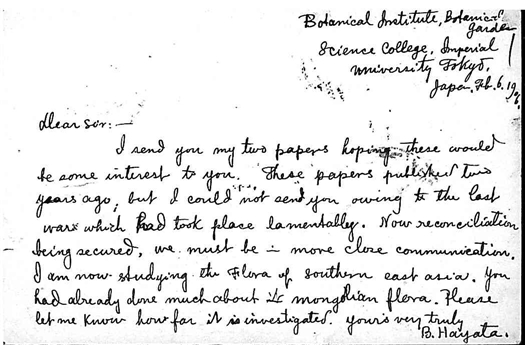 Botanical Institute, Botanical
Garden
Science College, Imperial
University Tokyo,
Japan, Feb. 6. 19
Dear sir:—
I send you my two papers hoping these would
be some interest to you. These papers published two
years ago, but I could not send you owing to the last
war which had took place lamentally. Now reconciliation
being secured, we must be in more close communication.
I am now studying the Flora of southern east asia. You
had already done much about the mongolian flora. Please
let me know how far it is investigated. yours very truly
B. Hayata.